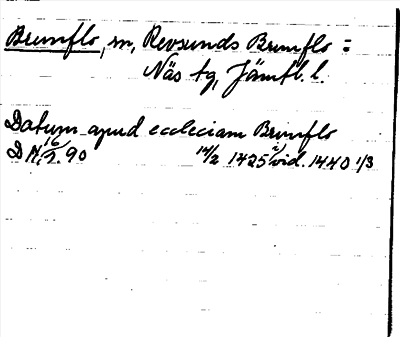 Brunflo, sn, Revsunds Brunflo =
Näs tg, Jämtl. l.
Datum apud eccleciam Brunflo
D N. 16/2. 90 14/2 1425 i vid. 1440 1/3